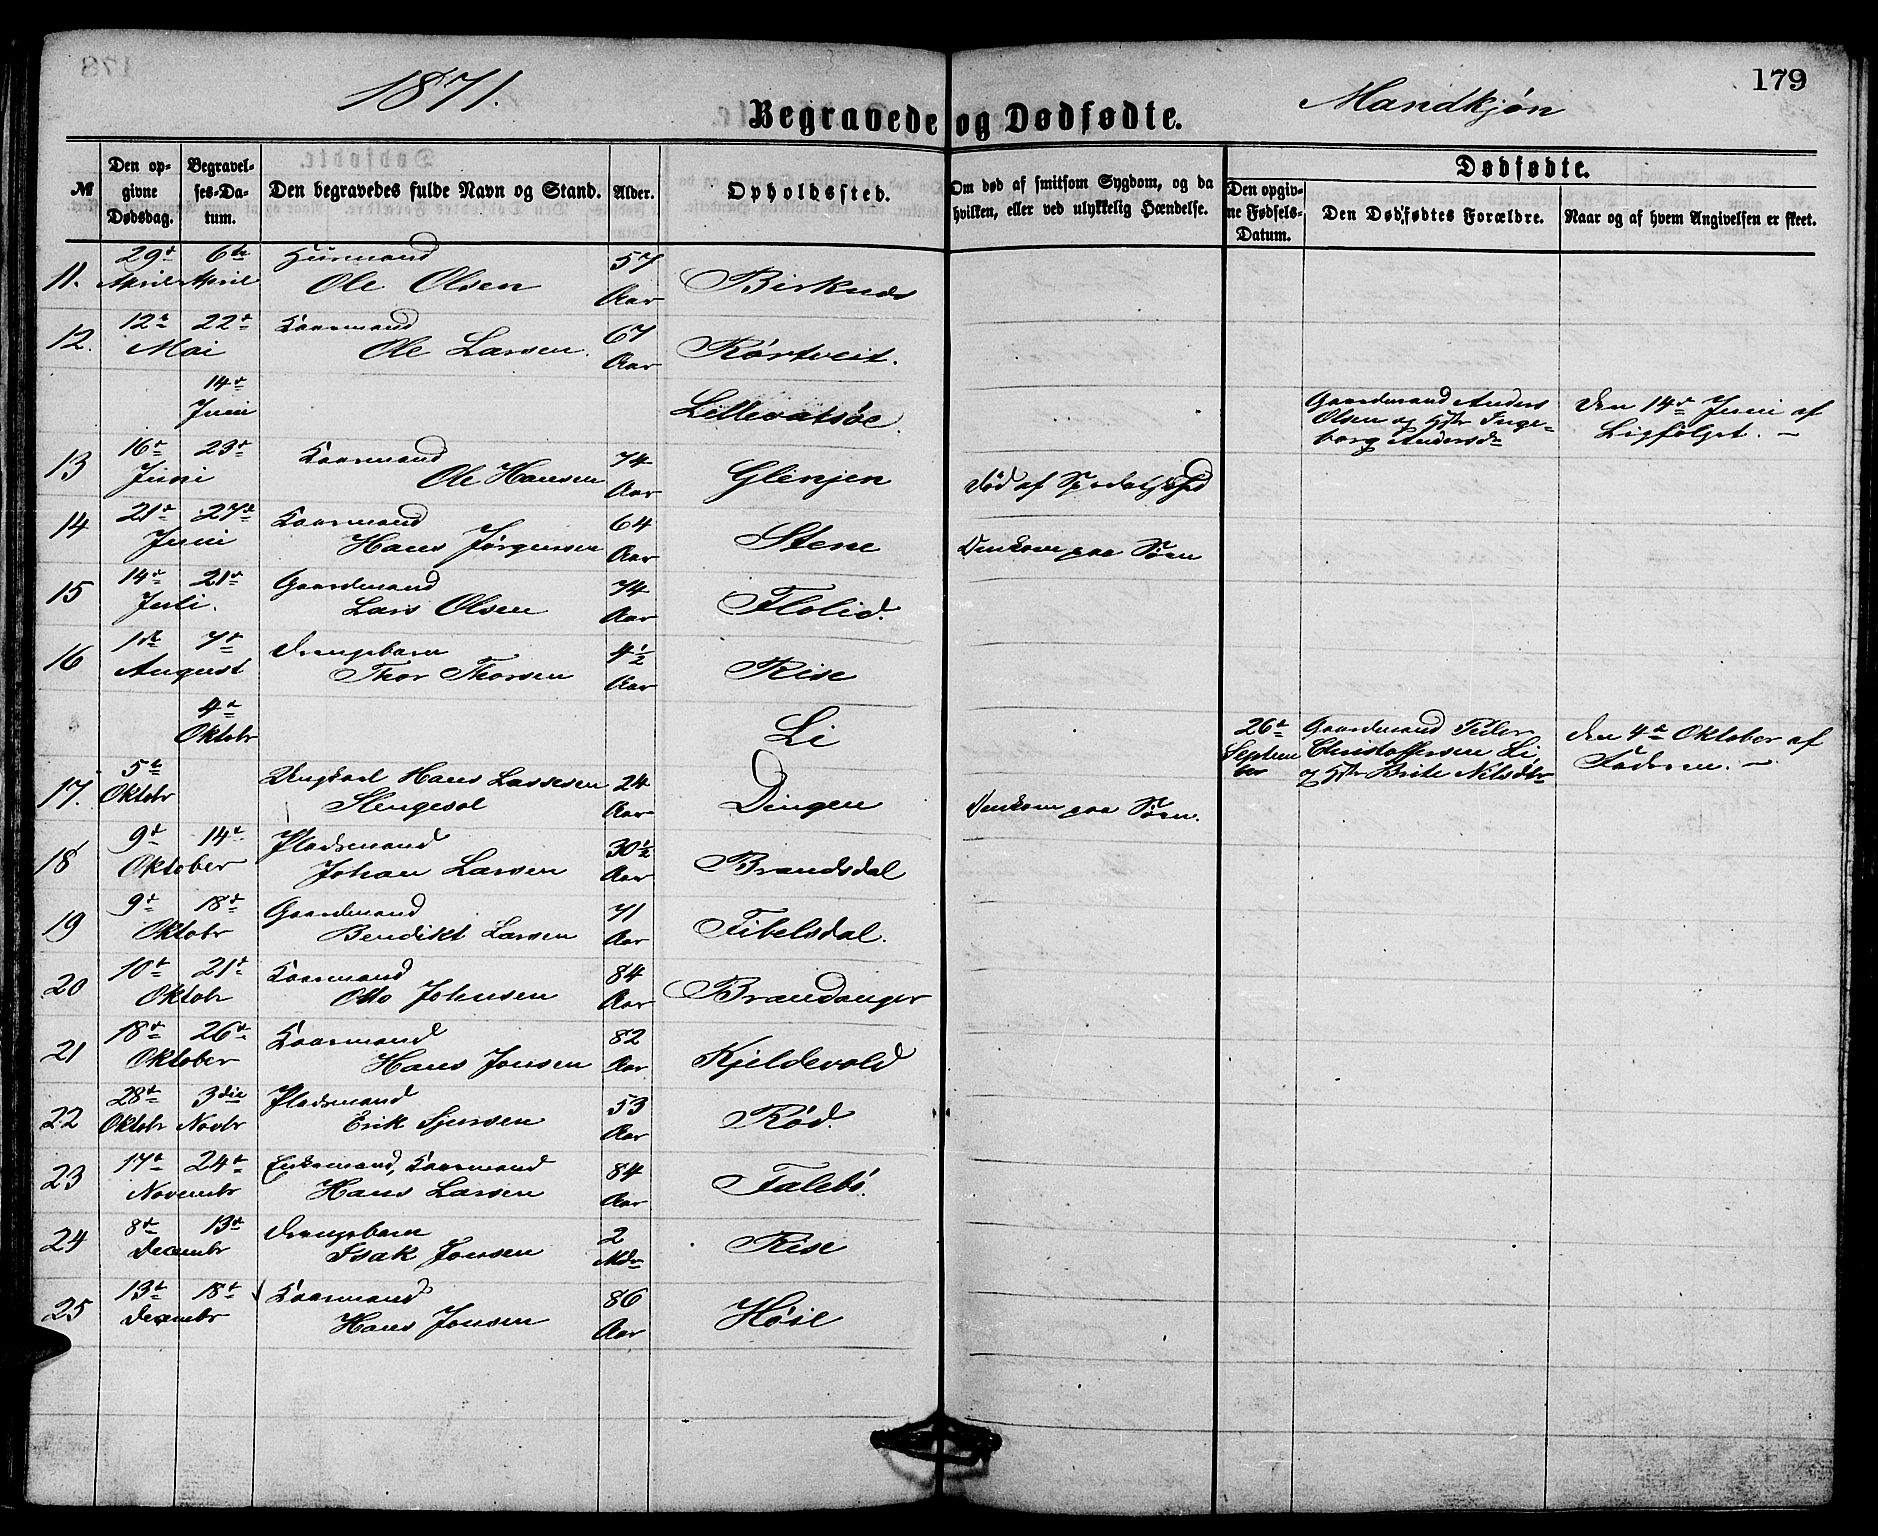 179
1871.
Begravede og Dødfødte.
Mandkjøn
№
Den opgivne Dødsdag.
Begravelses-Datum.
Den begravedes fulde Navn og Stand.
Alder.
Opholdssted.
Om død af smitsom Sygdom, og da hvilken, eller ved ulykkelig Hændelse.
Dødfødte.
Den opgivne Fødsels-Datum.
Den Dødfødtes Forældre.
Naar og af hvem Angivelsen er skeet.
11. 29de April 6te April Huusmand Ole Olsen 57 Aar Birknes
12. 12te 22de Mai Kaarmand Ole Larsen. 67 Aar Rørtveit.
14de Juni Lillevatsøe. Gaardmand Anders Olsen og Hstr Ingeborg Andersdr Den 14de Juni af Ligfølget. —
13 16de 23de Juni Kaarmand Ole Hansen 74 Aar Glenjen Død af Spedalskhed
14 21de 27de Juni Kaarmand Hans Jørgensen 64 Aar Stene Omkom paa Søen
15 14de 21de Juli. Gaardmand Lars Olsen 74 Aar Flolid.
16 1ste 7de August Drengebarn Thor Thorsen 4½ Aar Rise
4de Oktobr Li 26de September Gaardmand Peder Christoffersen Li, og Hstr Brite Nilsdtr Den 4de Oktober af Faderen. —
17. 5te Oktobr Ungkarl Hans Lassesen Slengesol 24 Aar Dingen Omkom paa Søen.
18 9de 14de Oktober Pladsmand Johan Larsen 30½ Aar Brandsdal
19 9de 18de Oktobr Gaardmand Bendikt Larsen 71 Aar Fibelsdal.
20 10de 21de Oktobr Kaarmand Otto Johnsen 84 Aar Brandanger
21 18de 26de Oktober Kaarmand Hans Jonsen 82 Aar Kjeldevold
22 28de Oktobr 3die Novbr Pladsmand Erik Sjursen 53 Aar Rød.
23 17de 24de Novembr Enkemand, Kaarmand Hans Larsen 84 Aar Falebø.
24 8de 13de Decembr Drengebarn Isak Jonsen 2 Mdr Rise
25 13de 18de Decembr Kaarmand Hans Jonsen 86 Aar Høie